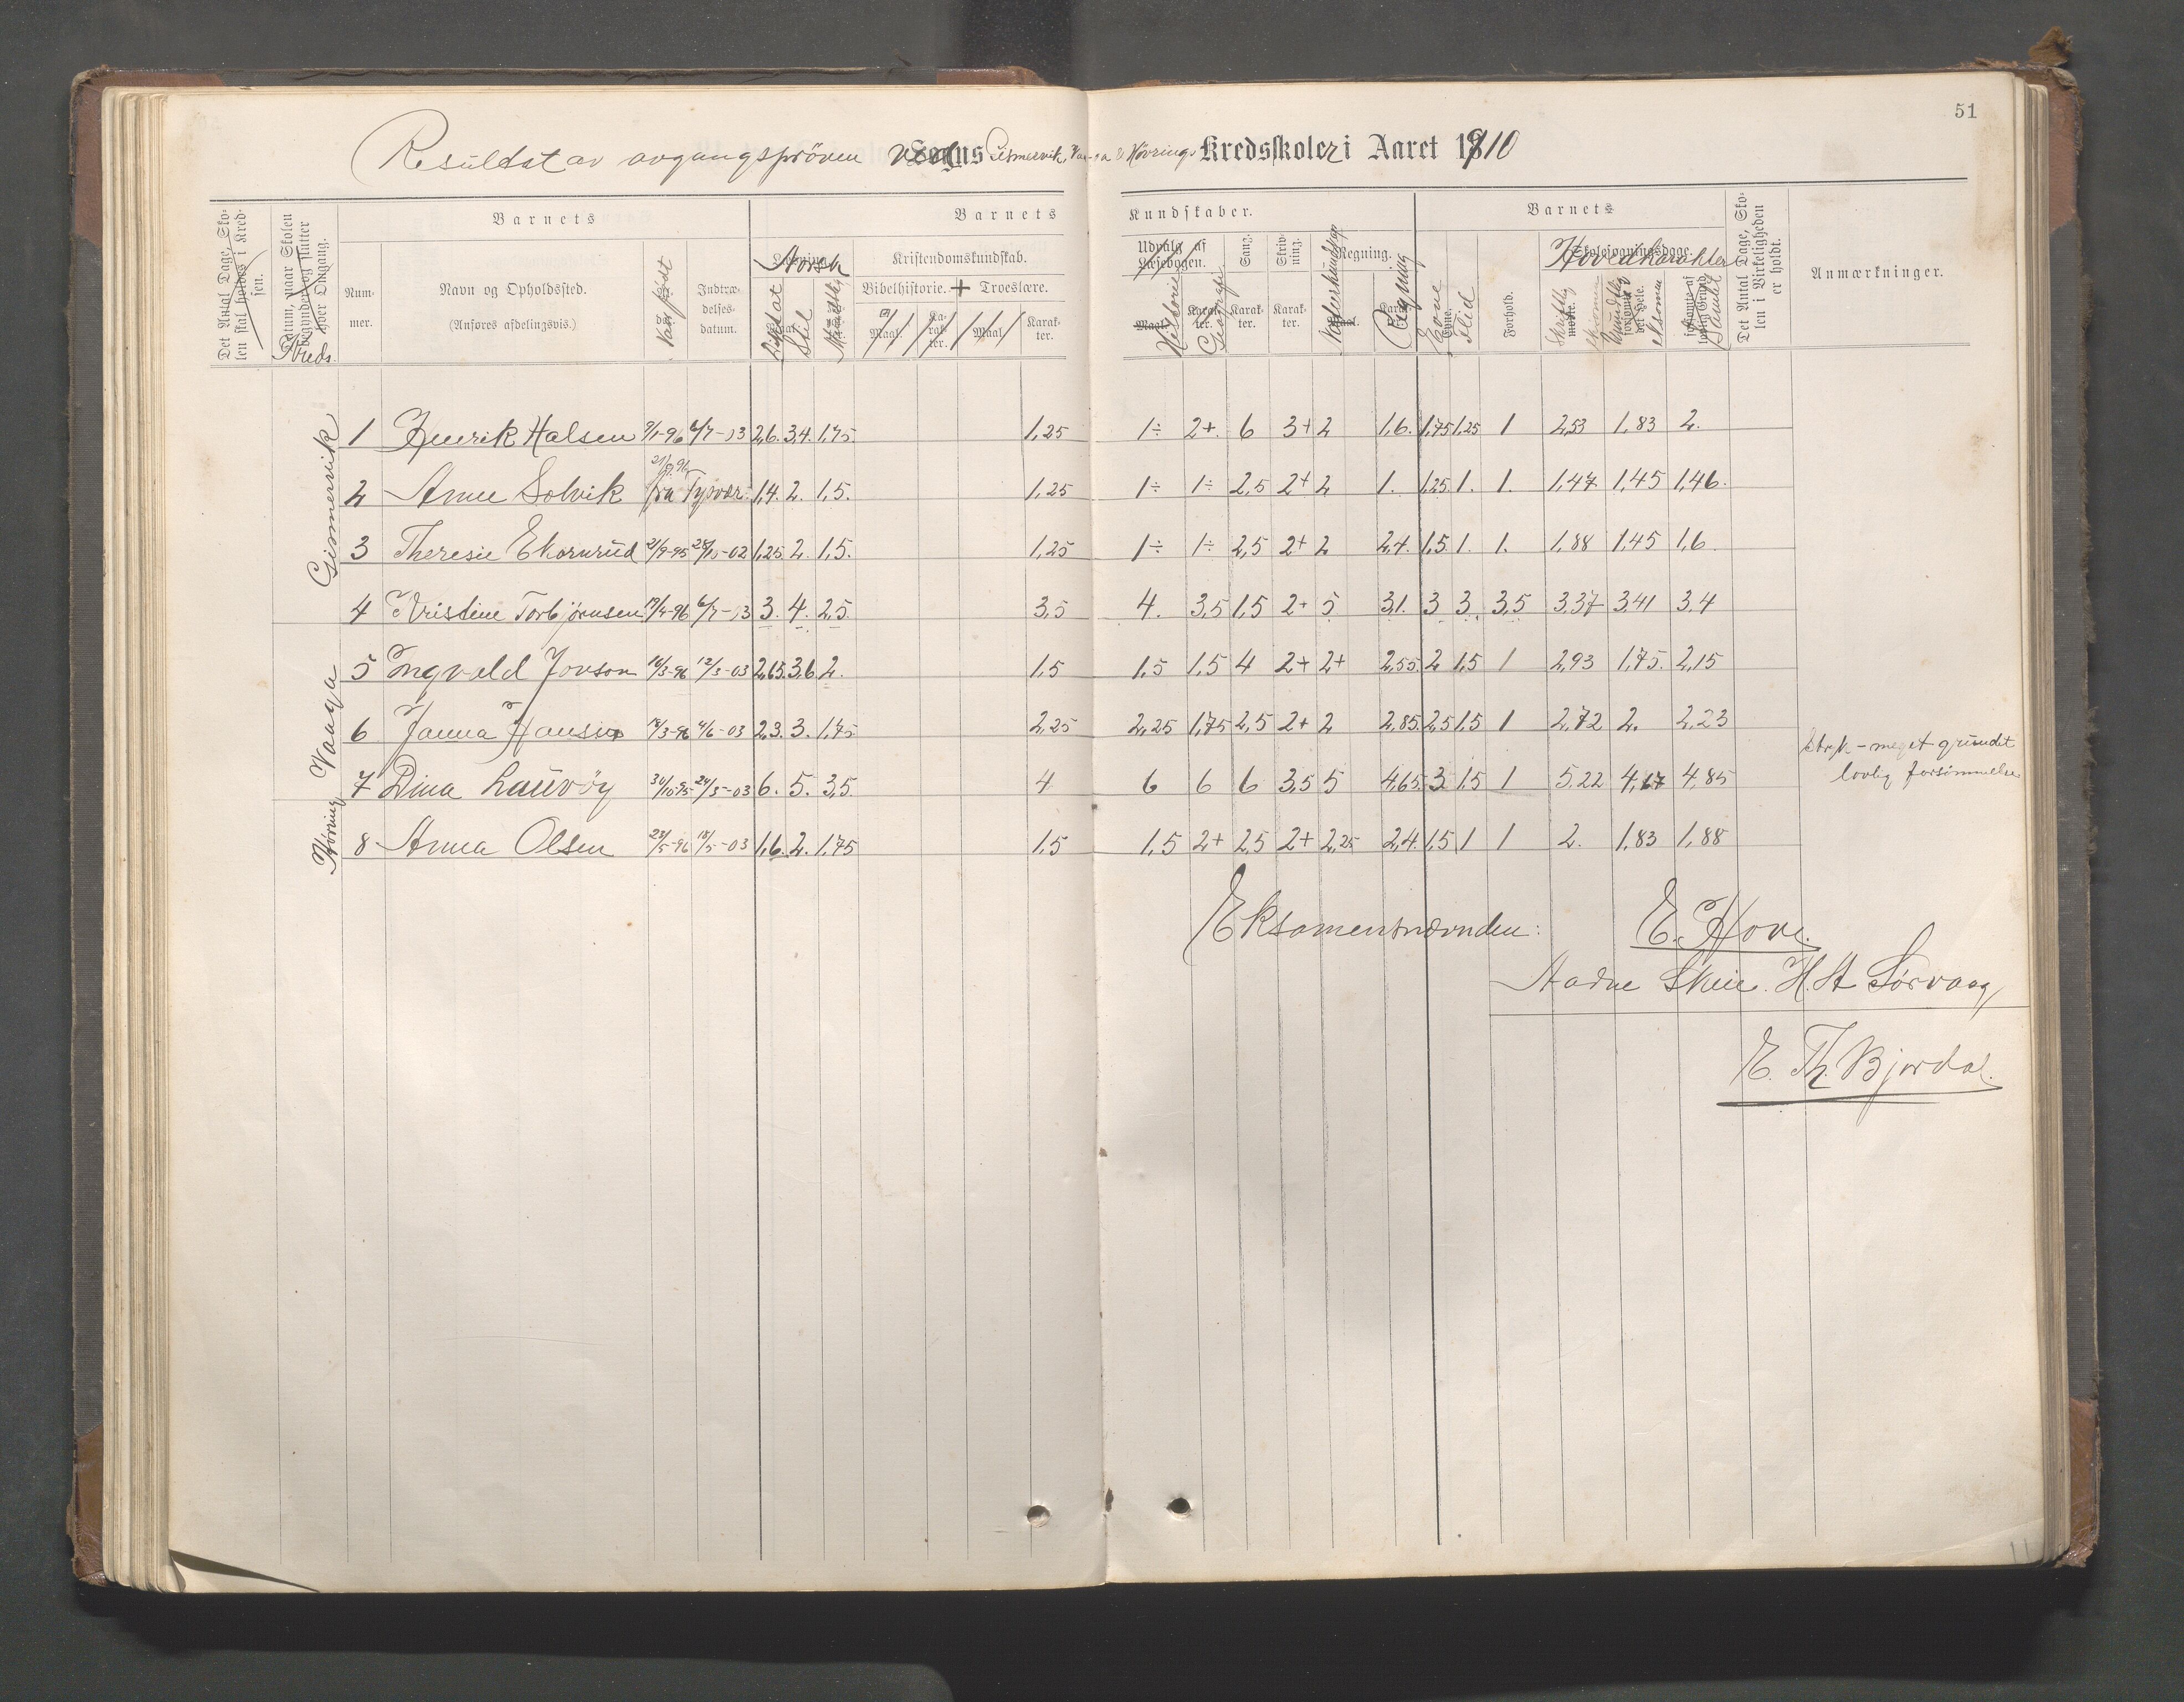 51
Resultat av avgangspröven ved Gismervik, Vaaga & Kövrings Kredsskoler i Aaret 1910
Det Antal Dage, Skolen skal holdes i Kredsen.
Datum, naar Skolen begynder og slutter hver Omgang.
Kreds.
Barnets
Barnets Kundskaber.
Barnets
Det Antal Dage, Skolen i Virkeligheden er holdt.
Anmærkninger.
Nummer.
Navn og Opholdssted.
(Anføres afdelingsvis.)
Naar født
Indtrædelsesdatum.
Norsk
Diktat
Stil
Mundtlig
Kristendomskundskab.
Bibelhistorie. + Troeslære.
Maal.
Karakter.
Maal
Karakter.
Udvalg af Læsebogen.
Historie
Geografi
Sang.
Karakter.
Skrivning.
Karakter.
Regning.
Naturkundskap
Regning
Evne
Flid
Forhold.
Skolesøgningsdage.
Hovedkarakter
Skriftlig eksamen
Mundtlig eksamen
Samlet
Gismervik
1 Henrik Halsen 9/1-96 6/7-03 2,6. 3,4. 1,75. 1,25 1÷ 2+. 6 3+ 2 1,6. 1,75 1,25 1 2,53 1,83 2.
2 Anne Solvik 21/9.96 fra Tysvær. 1,4. 2. 1,5. 1,25 1÷ 1÷ 2,5 2+ 2 1. 1,25. 1. 1. 1,47 1,45 1,46.
3 Theresie Ekornrud 21/9-95 28/15-02 1,25 2. 1,5. 1,25 1÷ 1÷ 2,5 2+ 2 2,4. 1,5 1. 1. 1,88 1,45 1,6.
4 Kristine Torbjørnsen 19/4-96 6/7-03 3. 4. 2,5. 3,5 4. 3,5 1,5 2+ 5 3,1. 3 3. 3,5 3,37 3,41 3,4
Vaaga
5 Ingvald Jonson 10/3-96 12/3-03 2,65. 3,6 2. 1,5 1,5 1,5 4 2+ 2+ 2,55. 2 1,5 1 2,93 1,75. 2,15
6 Janna Hansen 18/3-96 4/6-03 2,3. 3. 1,75 2,25 2,25 1,75 2,5 2+ 2 2,85. 2,5 1,5 1 2,72 2. 2,23
7 Dina Lauvöy 30/10-95 24/3-03 6. 5. 3,5. 4 6 6 6 3,5 5 4,65. 3 1,5 1 5,22 4,67 4,85 Stryk - meget grundet lovlig forsömmelse
Kövring
8 Anna Olsen 23/5-96 18/5-03 1,6. 2. 1,75 1,5 1,5 2+ 2,5 2+ 2,25 2,4. 1,5 1 1 2. 1,83 1,88
Eksamensnævnden: E. Hove.
Aadne Skeie. H. A Sørvaag
E. Th. Bjordal.